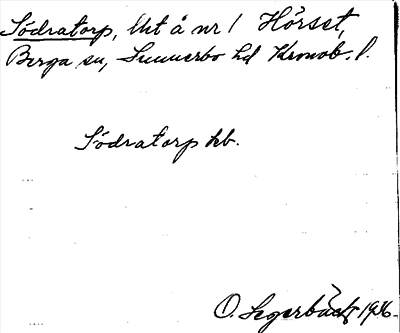 Södratorp, lht å nr 1 Hörset,
Berga sn, Sunnerbo hd Kronob. l.
Södratorp hb.
O. Segerbäck 1936.